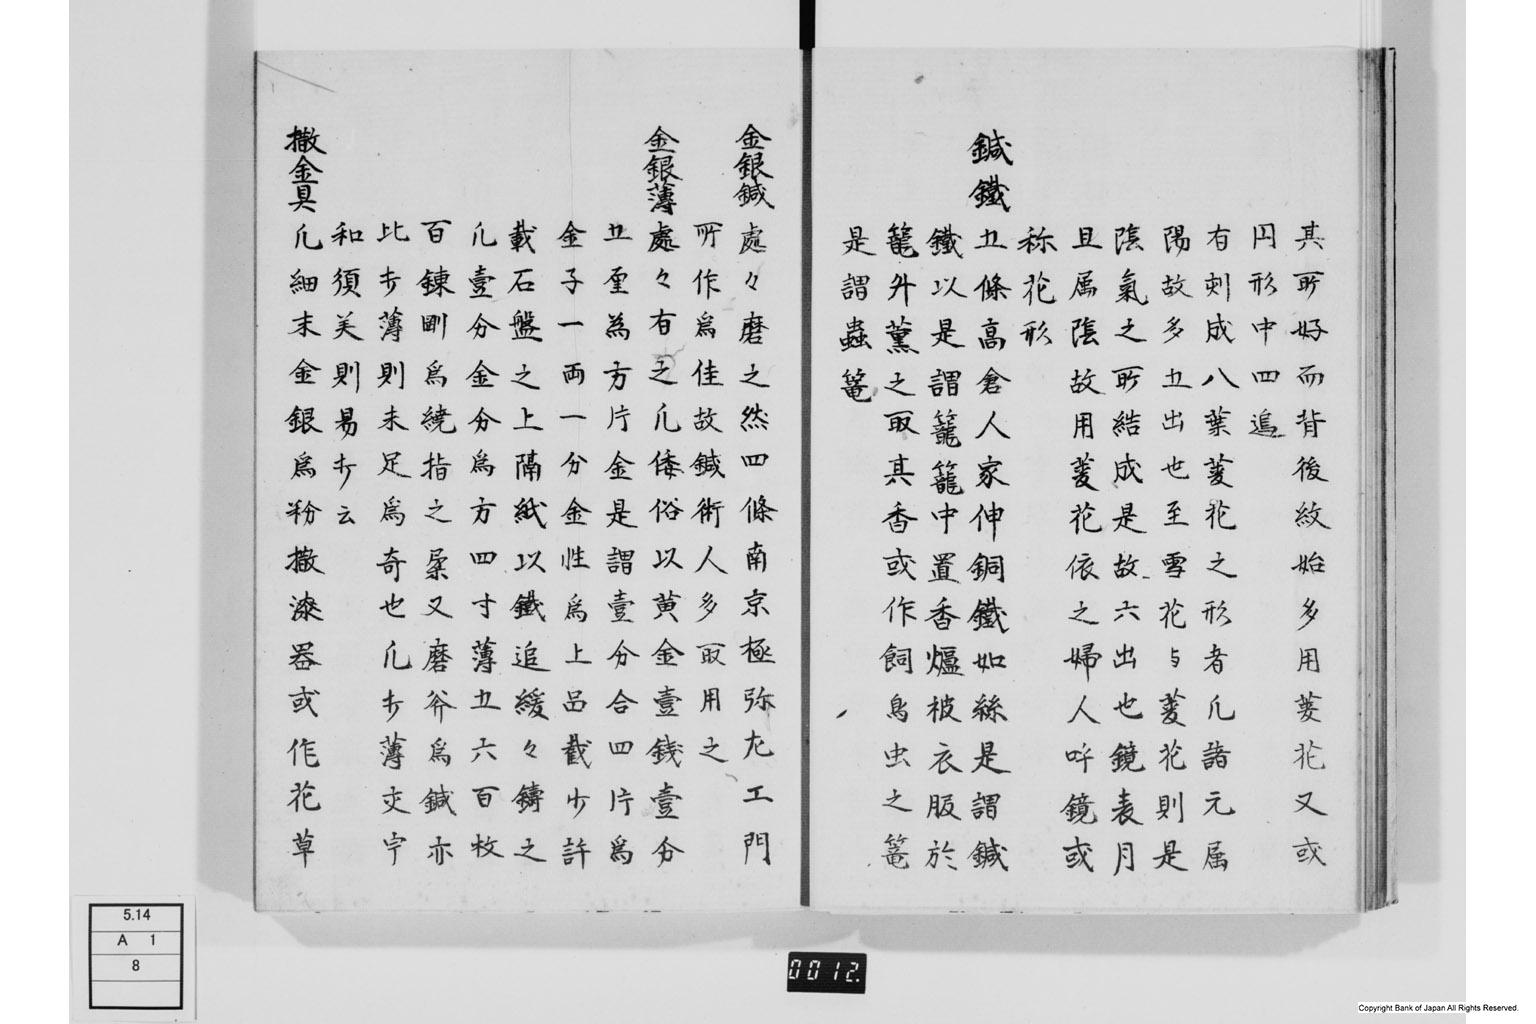 其所好而背後紋始多用菱花又或
円形中四邉
有刺成八葉菱花之形者凡諸元属
陽故多五出也至雪花与菱花則是
陰氣之所結成是故六出也鏡表月
且属陰故用菱花依之婦人呼鏡或
称花形
鍼鐵
五條高倉人家伸銅鐵如絲是謂鍼
鐵以是謂籠籠中置香爐被衣服於
篭外薫之取其香或作飼鳥虫之篭
是謂蟲篭
金銀鍼 處々磨之然四條南京極弥左工門
所作爲佳故鍼術人多取用之
金銀薄 處々有之凡倭俗以黄金壹銭壹分
五厘為方片金是謂壹分合四片爲
金子一両一分金性爲上品截少許
載石盤之上隔紙以鐵追緩々鑄之
凡壹分金分爲方四寸薄五六百枚
百錬剛爲繞指之柔又磨斧爲鍼亦
比打薄則未足爲奇也凡打薄丈宇
和須美則易打云
撒金具 凡細末金銀爲粉撒漆器或作花草
5.14
A 1
8
0012.
Copyright Bank of Japan All Rights Reserved.